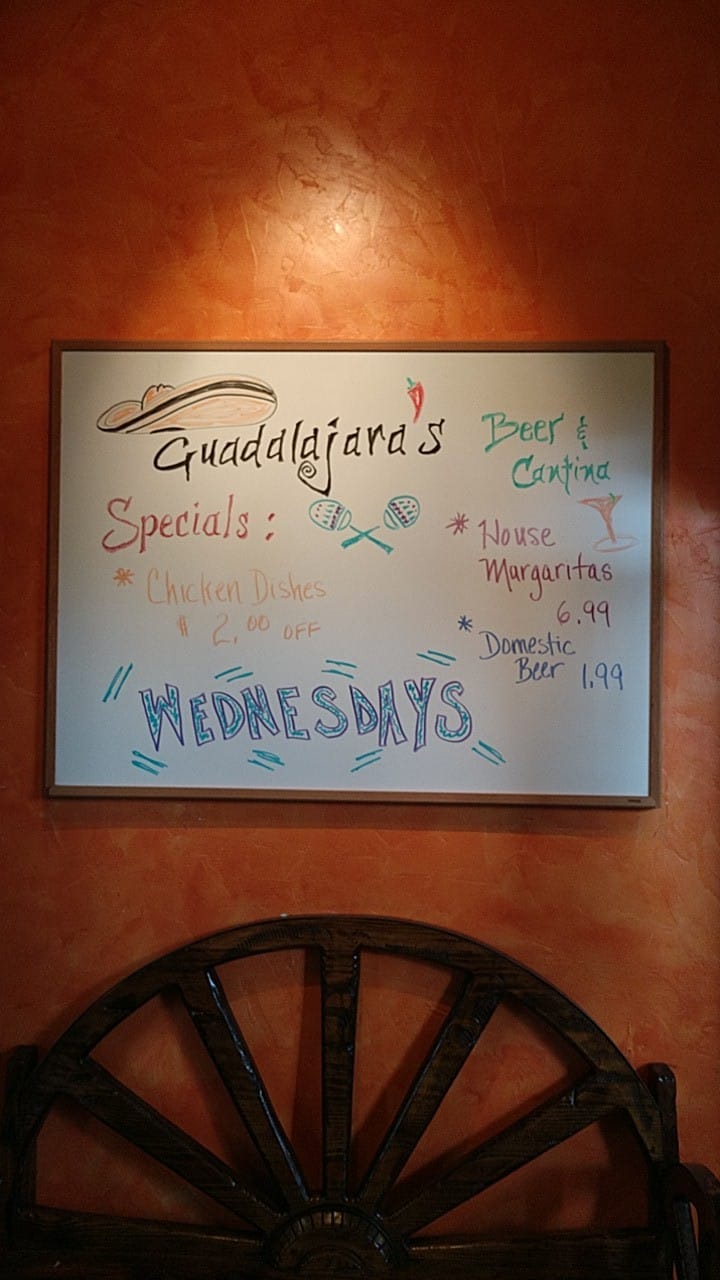 Guadalajara's
Specials:
* Chicken Dishes
$2.00 OFF
WEDNESDAYS
Beer &
Cantina
* House
Margaritas
6.99
* Domestic
Beer 1.99